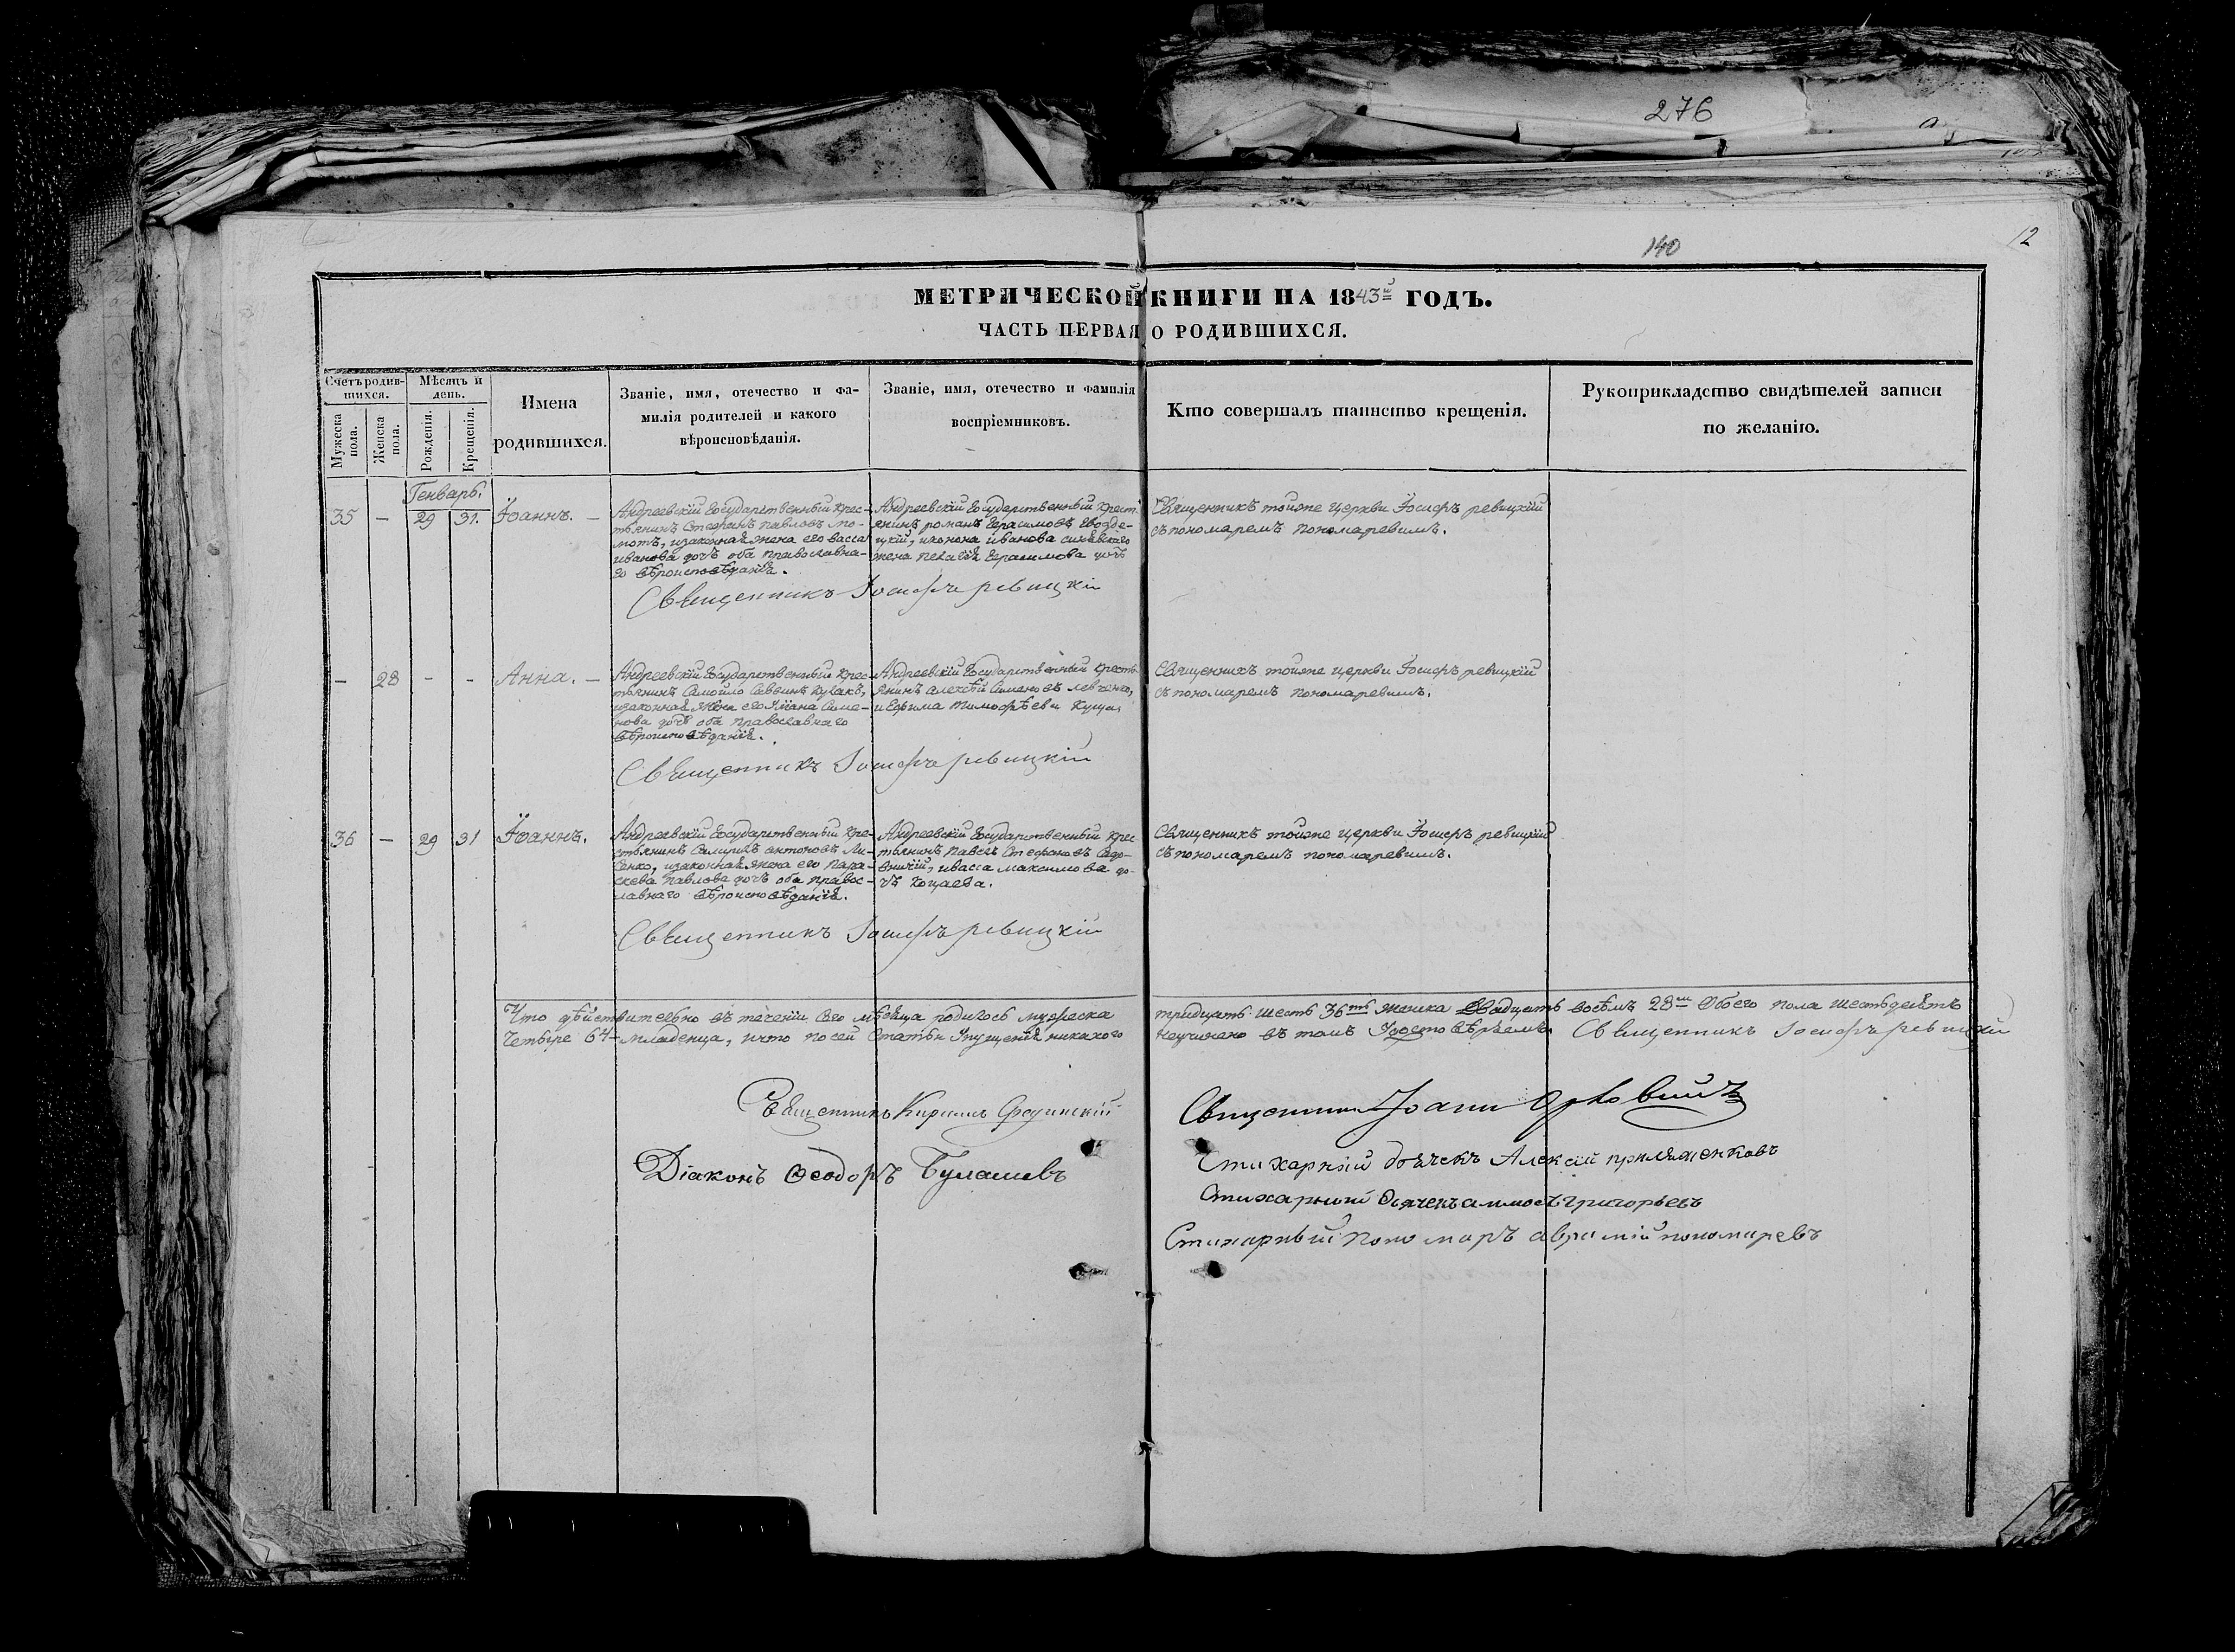 276
140
12
МЕТРИЧЕСКОЙ КНИГИ НА 1843й ГОДЪ.
ЧАСТЬ ПЕРВАЯ О РОДИВШИХСЯ.
Счетъ родив-
шихся.
Мужеска
пола.
Женска
пола.
Мѣсяцъ и
день.
Рожденія.
Крещенія.
Имена
родившихся.
Званіе, имя, отечество и фа-
милія родителей и какого
вѣроисповѣданія.
Званіе, имя, отечество и фамилія
воспріемниковъ.
Кто совершалъ таинство крещенія.
Рукоприкладство свидѣтелей записи
по желанію.
Генварь.
35 — 29 31. Іоаннъ. —
Андреевскій Государственный крес-
тьянинъ Стефанъ Павловъ Мо-
мотъ, изаконная жена его васса
иванова дочь оба православна-
го вѣроисповѣданія.
Андреевскій Государственный крест
янинъ романъ Герасимовъ Гвозде-
цкій, ижена иванова
жена Пелагія Герасимова дочь
Священникъ тойже церкви Іосифъ ревицкій
съ пономаремъ пономаревимъ.
Священникъ Іосифъ ревицкій
— 28 - - Анна. —
Андреевскій Государственный крес-
тьянинъ Самойло Саввинъ Кулакъ,
изаконная жена его Уліана Симе-
нова дочь оба православнаго
вѣроисповѣданія.
Андреевскій Государственный кресть-
янинъ алексѣй Симеоновъ левченко,
и Ефима Тимофѣева
Священникъ тойже церкви Іосифъ ревицкій
съ пономаремъ пономаревимъ.
Священникъ Іосифъ ревицкій
36 — 29 31 Іоаннъ.
Андреевскій Государственный кре-
стьянинъ антоновъ Ли-
сенко, изаконная жена его Пара-
скева Павлова дочь оба правос-
лавнаго вѣроисповѣданія.
Андреевскій Государственный крес-
тьянинъ Павелъ Стефановъ Садо-
вничій, ивасса максимова до-
чь Коцаева.
Священникъ тойже церкви Іосифъ ревицкій
съ пономаремъ пономаревимъ.
Священникъ Іосифъ ревицкій
Что дѣйствительно въ теченіи сего мѣсяца родилось мужеска тридцать шесть 36ть женска двадцать восѣмъ 28мъ обоего пола шестьдесятъ
четыре 64 младенца, ичто по сей статьи упущенія никакого неучинено въ томъ удостовѣряемъ Священникъ Іосифъ ревицкій
Священникъ Кирилъ
Священникъ Іоаннъ Орловскій
Діаконъ Феодоръ Булашевъ
Стихарный дьячекъ Алексій
Стихарный дьячекъ аммосъ григорьевъ
Стихарный Пономарь аврамій пономаревъ